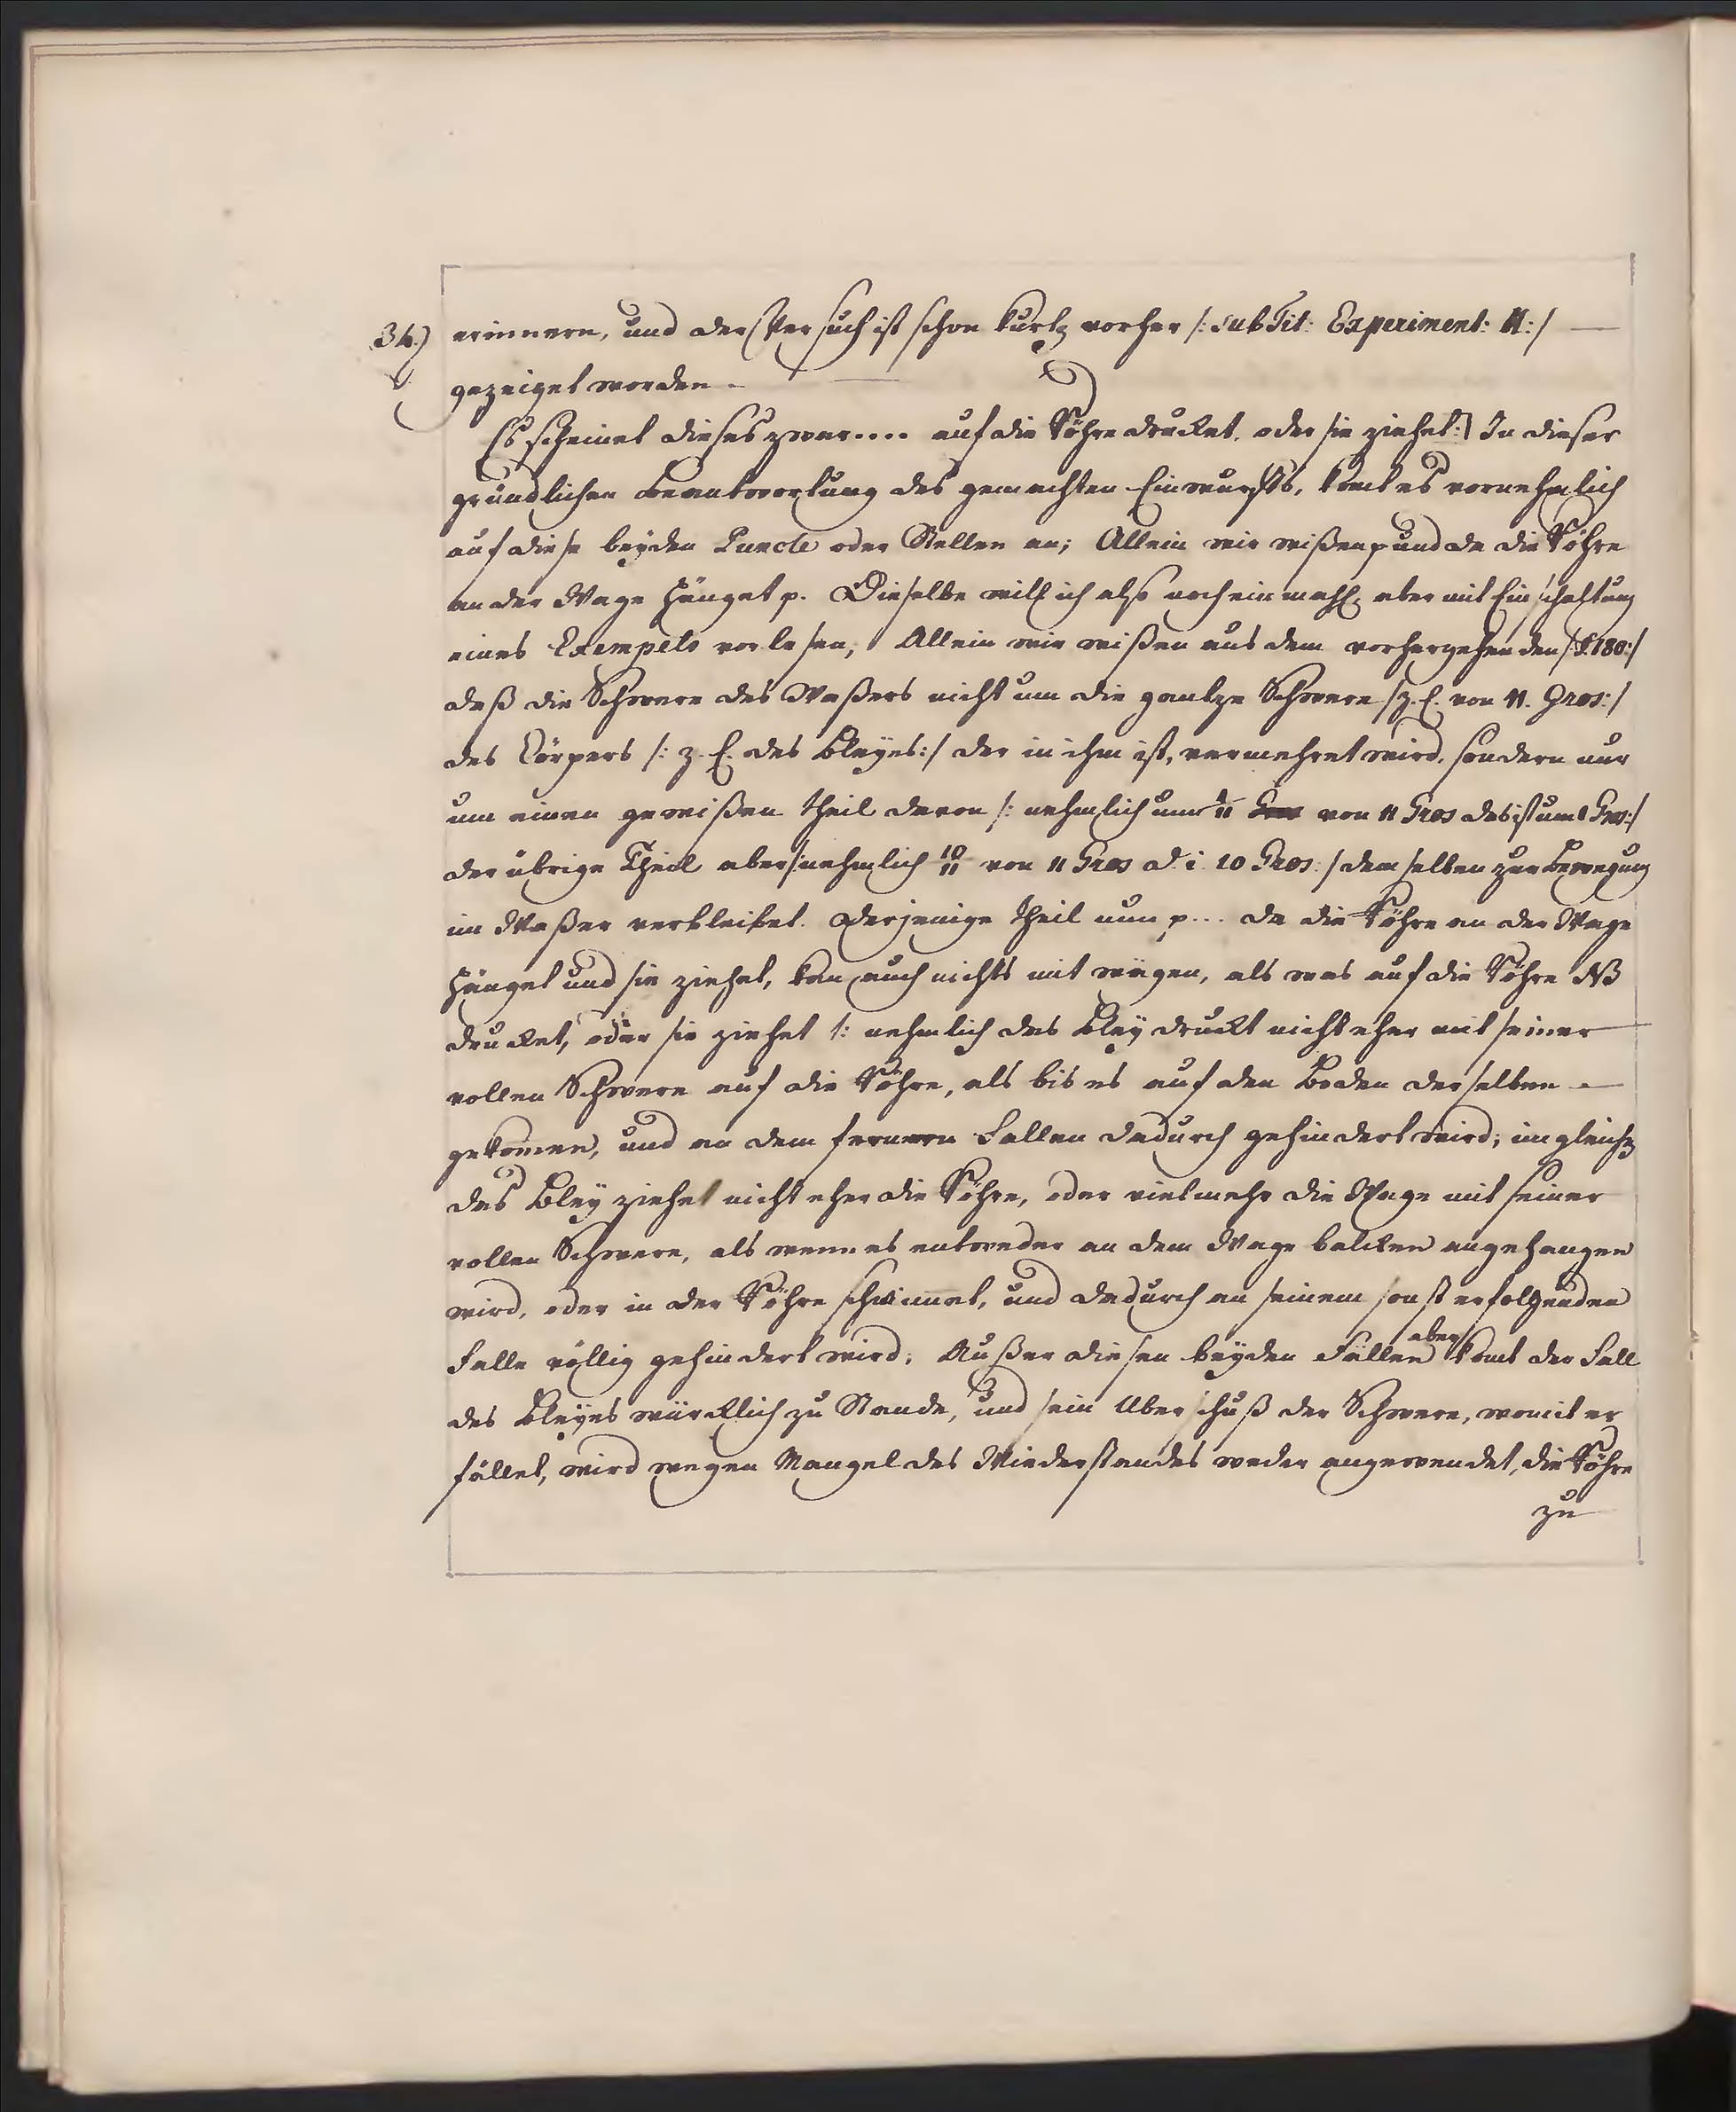 34.) erinnern, und der Versuch ist schon kurtz vorher /: sub Tit: Experiment: II:/ —
gezeiget worden.
Es scheinet dieses zwar.... auf die Röhre drucket, oder sie ziehet:] In dieser
gründlichen Beantwortung des gemachten Einwurffs, komt es vornehmlich
auf diese beyden Puncte oder Stellen an; Allein wir wißen p und da die Röhre
an der Wage hänget p. Dieselbe will ich also noch einmahl, aber mit Einschaltung
eines Exempels vorlesen; Allein wir wißen aus dem vorhergehenden /:§.180:/
daß die Schwere des Waßers nicht um die gantze Schwere /:z. E. von 11. Gros:/
des Cörpers /: z. E. des Bleyes:/ der in ihm ist, vermehret wird, sondern nur
um einen gewißen theil davon /: nehmlich um 1/11 von 11 Gros das ist um 1 Gros:/
der übrige Theil aber /:nehmlich 10/11 von 11 Gros d. i. 10 Gros:/ demselben zur Bewegung
im Waßer verbleibet. Derjenige theil nun p... da die Röhre an der Wage
hänget und sie ziehet, kan auch nichts mit wägen, als was auf die Röhre AB
drucket, oder sie ziehet /: nehmlich das Bley druckt nicht eher mit seiner
vollen Schwere auf die Röhre, als bis es auf den Boden derselben
gekomen, und an dem fernern Fallen dadurch gehindert wird; imgleichen
das Bley ziehet nicht eher die Röhre, oder vielmehr die Wage mit seiner
vollen Schwere, als wenn es entweder an dem Wage balcken angehangen
wird, oder in der Röhre schwimmet, und dadurch an seinem sonst erfolgenden
Falle völlig gehindert wird; Außer diesen beyden Fällen aber komt der Fall
des Bleyes würcklich zu Stande, und sein Uberschuß der Schwere, womit er
fället, wird wegen Mangel des Wiederstandes weder angewendet, die Röhre
zu